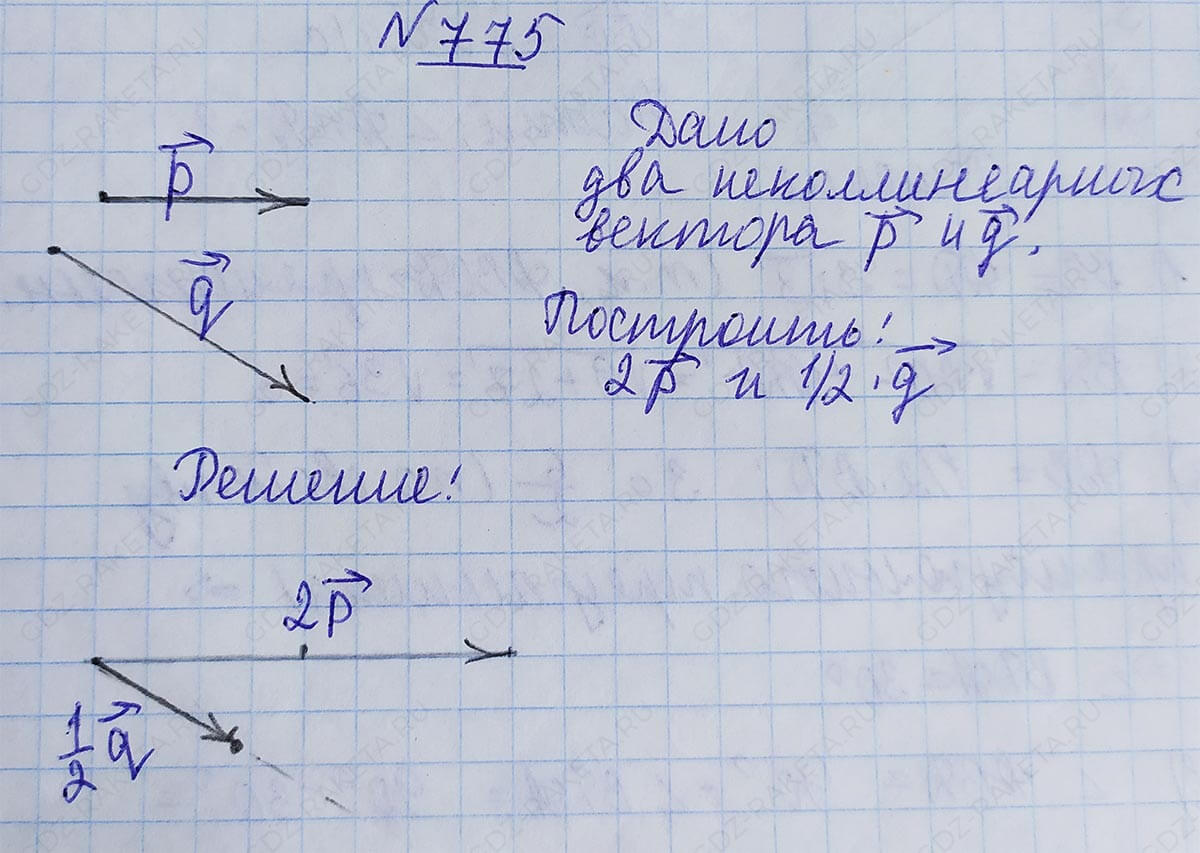 N 775
p
q
Дано
два неколлинеарных
вектора p и q.
Построить:
2p и 1/2 · q
Решение:
2p
1/2 q
GDZ-RAKETA.RU